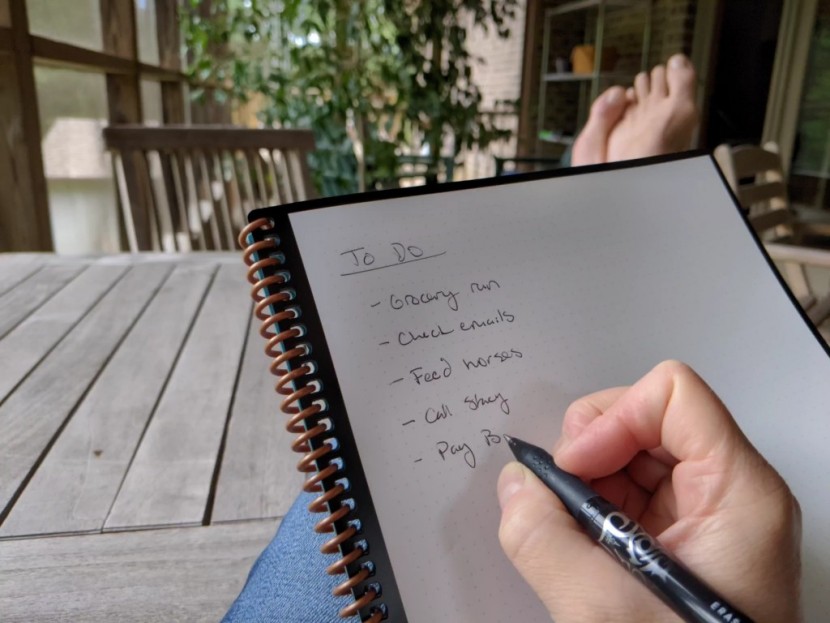 To Do
- Grocery run
- Check emails
- Feed horses
- Call Stacy
- Pay B
ERAS